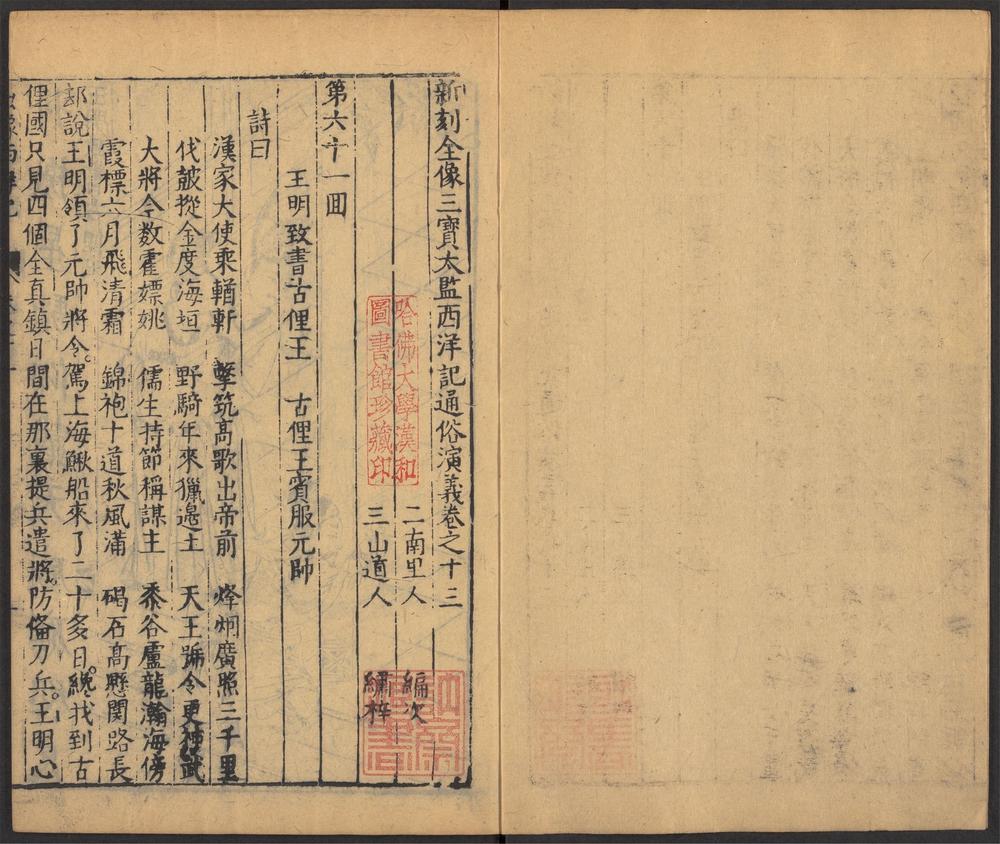 新刻全像三寳太監西洋記通俗演義卷之十三
二南里人 編次
三山道人 繡梓
哈佛大學漢和
圖書館珍藏印
第六十一囬
王明致書古俚王 古俚王賓服元帥
詩曰
漢家大使乘輶軒 擊筑髙歌出帝前 烽烟廣照三千里
伐皷摐金度海垣 野騎年來獵邉土 天王號令更神武
大將令数霍嫖姚 儒生持節稱謀主 黍谷盧龍瀚海傍
霞標六月飛清霜 錦袍十道秋風滿 碣石髙懸関路長
却說王明領了元帥將令。駕上海鰍船來了二十多日。纔找到古
俚國只見四個全真鎮日間在那裏提兵遣將。防俻刀兵。王明心